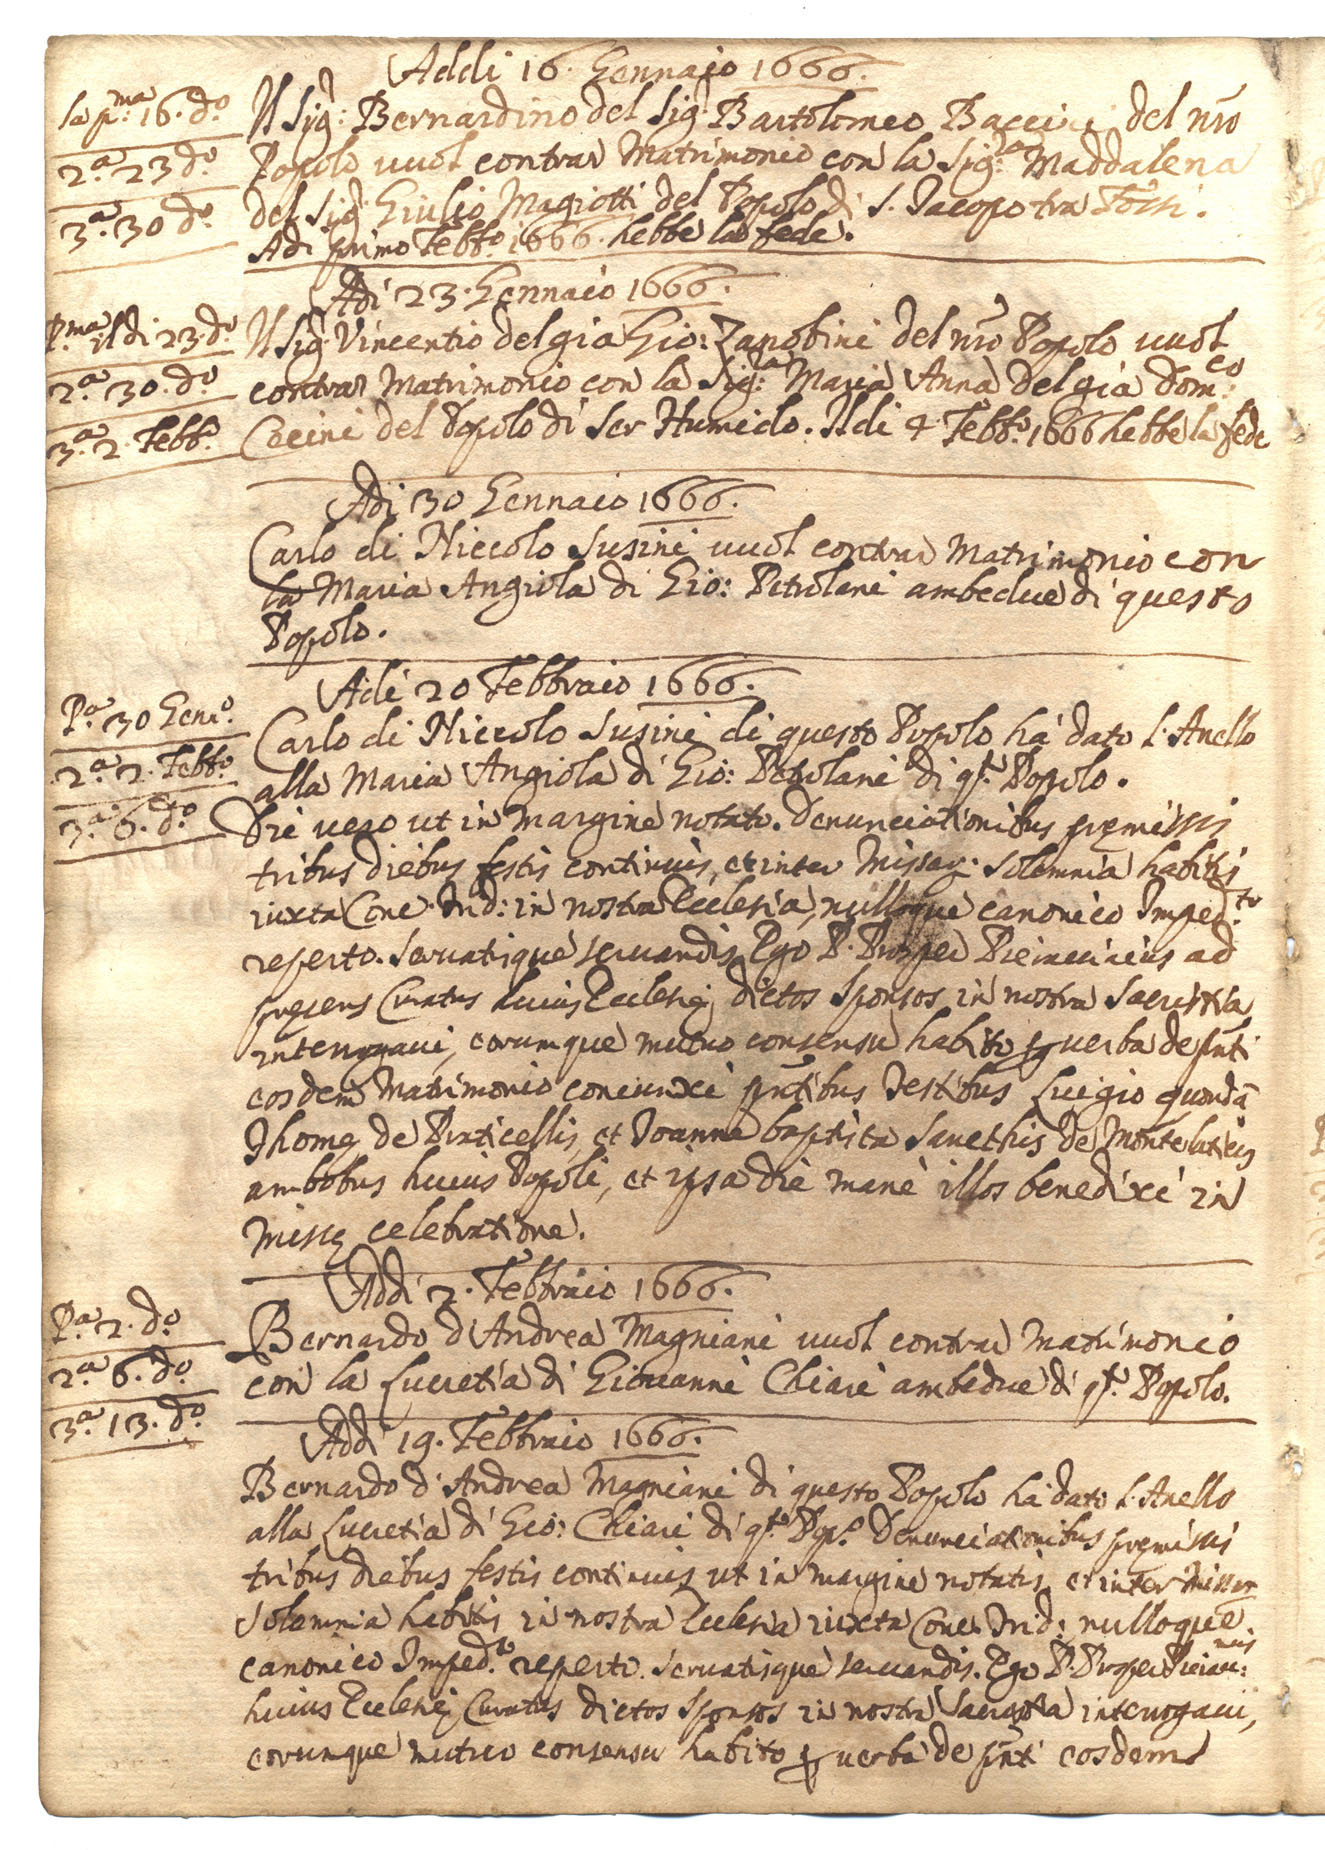 Addi 16. Gennaio 1666.
la p.ma 16. do.
2.a 23 do.
3.a 30 do.
Il Sig.r Bernardino del Sig.r Bartolomeo Baccini del nro
Popolo vuol contrar Matrimonio con la Sig.ra Maddalena
del Sig.r Giulio Magiotti del Popolo di S. Jacopo tra Fossi.
Adi primo Febb.o 1666. hebbe la fede.
Adi 23. Gennaio 1666.
P.ma il di 23. do.
2.a 30. do.
3.a 2. Febb.o
Il Sig.r Vincentio del già Gio: Zanobini del nro Popolo vuol
contrar Matrimonio con la Sig.ra Maria Anna del già Dom.co
Cecini del Popolo di Ser Humido. Il di 4 Febb.o 1666 hebbe la fede
Adi 30 Gennaio 1666.
Carlo di Niccolo Susini vuol contrar Matrimonio con
la Maria Angiola di Gio: Petrolani ambedue di questo
Popolo.
Adi 20 Febbraio 1666.
P.a 30 Genn.o
2.a 2. Febb.o
3.a 6. do.
Carlo di Niccolo Susini di questo Popolo hà dato l'Anello
alla Maria Angiola di Gio: Petrolani di q.to Popolo.
Die vero ut in margine notato. Denunciationibus pręmissis
tribus diebus festis continuis, et inter Missar. solemnia habitis
iuxta Conc. Trid: in nostra Ecclesia, nulloque canonico Imped.to
reperto. Servatisque servandis Ego P. Prosper ad
pręsens Curatus huius Ecclesię, dictos sponsos in nostra Sacristia
interrogavi, eorumque mutuo consensu habito per verba de pnti
eosdem Matrimonio coniunxi pntibus Testibus Luigio quondā
Thomę de Praticellis, et Joanne baptista Sanethis de Montelaticis
ambobus huius Popoli, et ipsa die manè illos benedixi in
Missę celebratione.
Addi 2. Febbraio 1666.
P.a 2. do.
2.a 6. do.
3.a 13. do.
Bernardo d'Andrea Magniani vuol contrar Matrimonio
con la Lucretia di Giovanni Chiari ambedue di q.to Popolo.
Addi 19. Febbraio 1666.
Bernardo d'Andrea Magniani di questo Popolo hà dato l'Anello
alla Lucretia di Gio: Chiari di q.to Pop.o Denunciationibus pręmissis
tribus diebus festis continuis ut in margine notatis, et inter Missar
solemnia habitis in nostra Ecclesia iuxta Conc. Trid: nulloque
canonico Imped.to reperto. Servatisque servandis. Ego P. Prosper
huius Ecclesię Curatus dictos sponsos in nostra Sacristia interrogavi,
eorumque mutuo consensu habito per verba de pnti eosdem